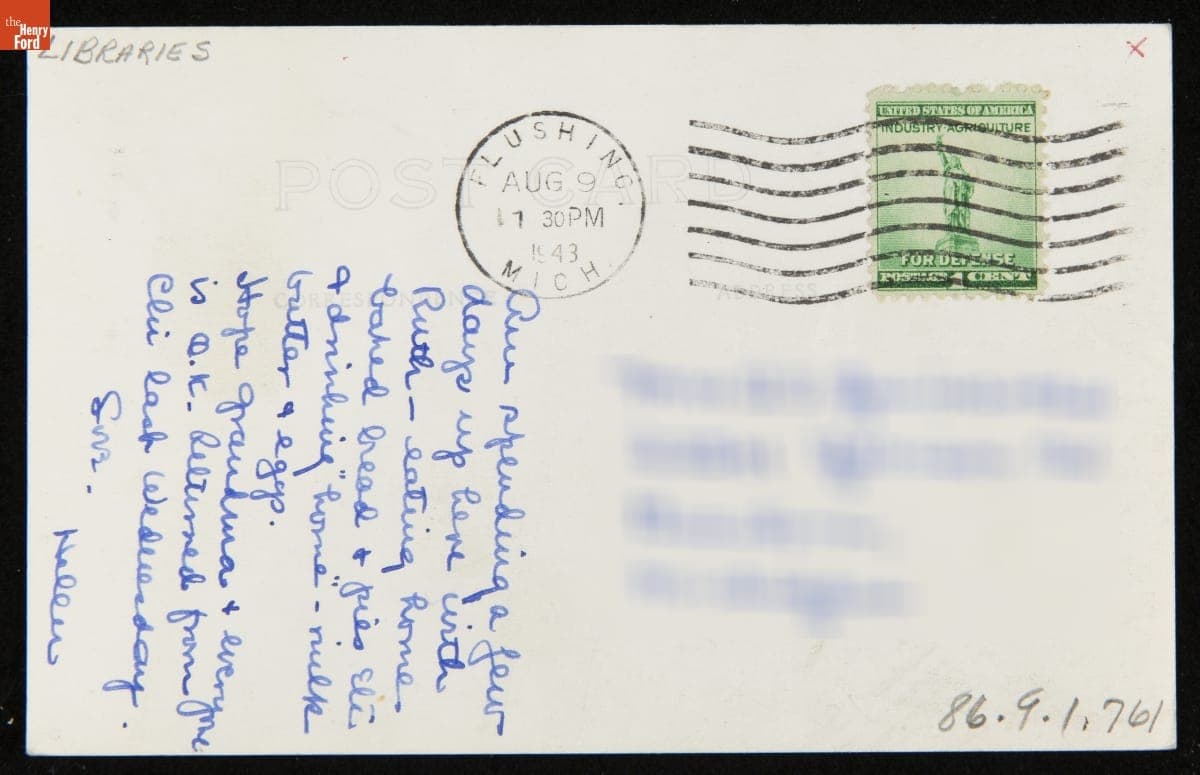 the
Henry
Ford
LIBRARIES
x
POST CARD
FLUSHING,
AUG 9
30PM
1943
MICH.
UNITED STATES OF AMERICA
INDUSTRY AGRICULTURE
FOR DEFENSE
POSTAGE 1 CENT
CORRESPONDENCE
ADDRESS
Am spending a few
days up here with
Ruth - eating home
baked bread & pies etc
& drinking "home" - milk
butter & eggs.
Hope grandma & everyone
is O.K. Returned from
Chi last Wednesday.
Helen
86.9.1.761